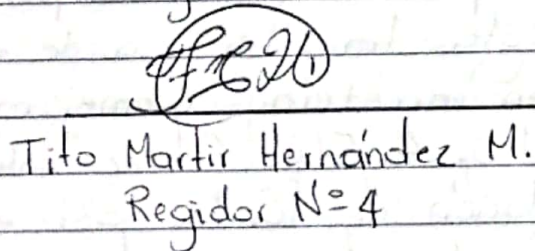 Tito Martir Hernández M.
Regidor Nº 4